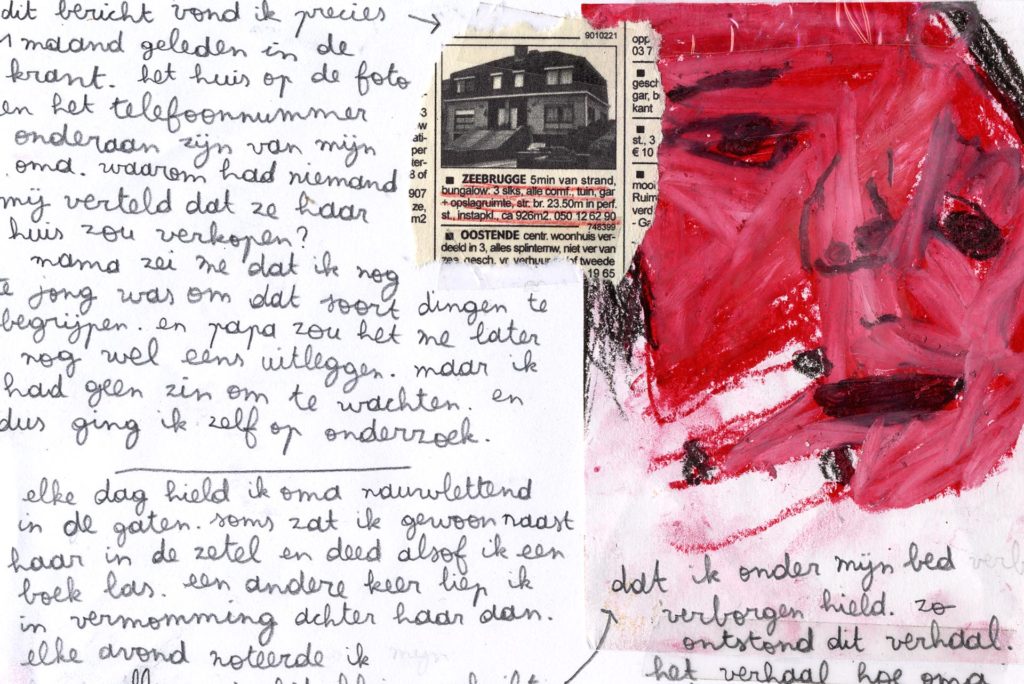 dit bericht vond ik precies
1 maand geleden in de
krant. het huis op de foto
en het telefoonnummer
onderaan zijn van mijn
oma. waarom had niemand
mij verteld dat ze haar
huis zou verkopen?
mama zei me dat ik nog
te jong was om dat soort dingen te
begrijpen. en papa zou het me later
nog wel eens uitleggen. maar ik
had geen zin om te wachten. en
dus ging ik zelf op onderzoek.
elke dag hield ik oma nauwlettend
in de gaten. soms zat ik gewoon naast
haar in de zetel en deed alsof ik een
boek las. een andere keer liep ik
in vermomming achter haar aan.
elke avond noteerde ik mijn
9010221
■ ZEEBRUGGE 5min van strand,
bungalow: 3 slks, alle comf., tuin, gar
+ opslagruimte, str. br. 23.50m in perf.
st., instapkl., ca 926m2. 050 12 62 90
748399
■ OOSTENDE centr. woonhuis ver-
deeld in 3, alles splinternw, niet ver van
zee, gesch. vr verhuur of tweede
19 65
3
ati-
per
ter-
3 of
907
ze,
m2
opp
03 7
gesch
gar, b
kant
st., 3
€ 10
mooi
Ruim
verd
- Ga
dat ik onder mijn bed
verborgen hield. zo
ontstond dit verhaal.
het verhaal hoe oma